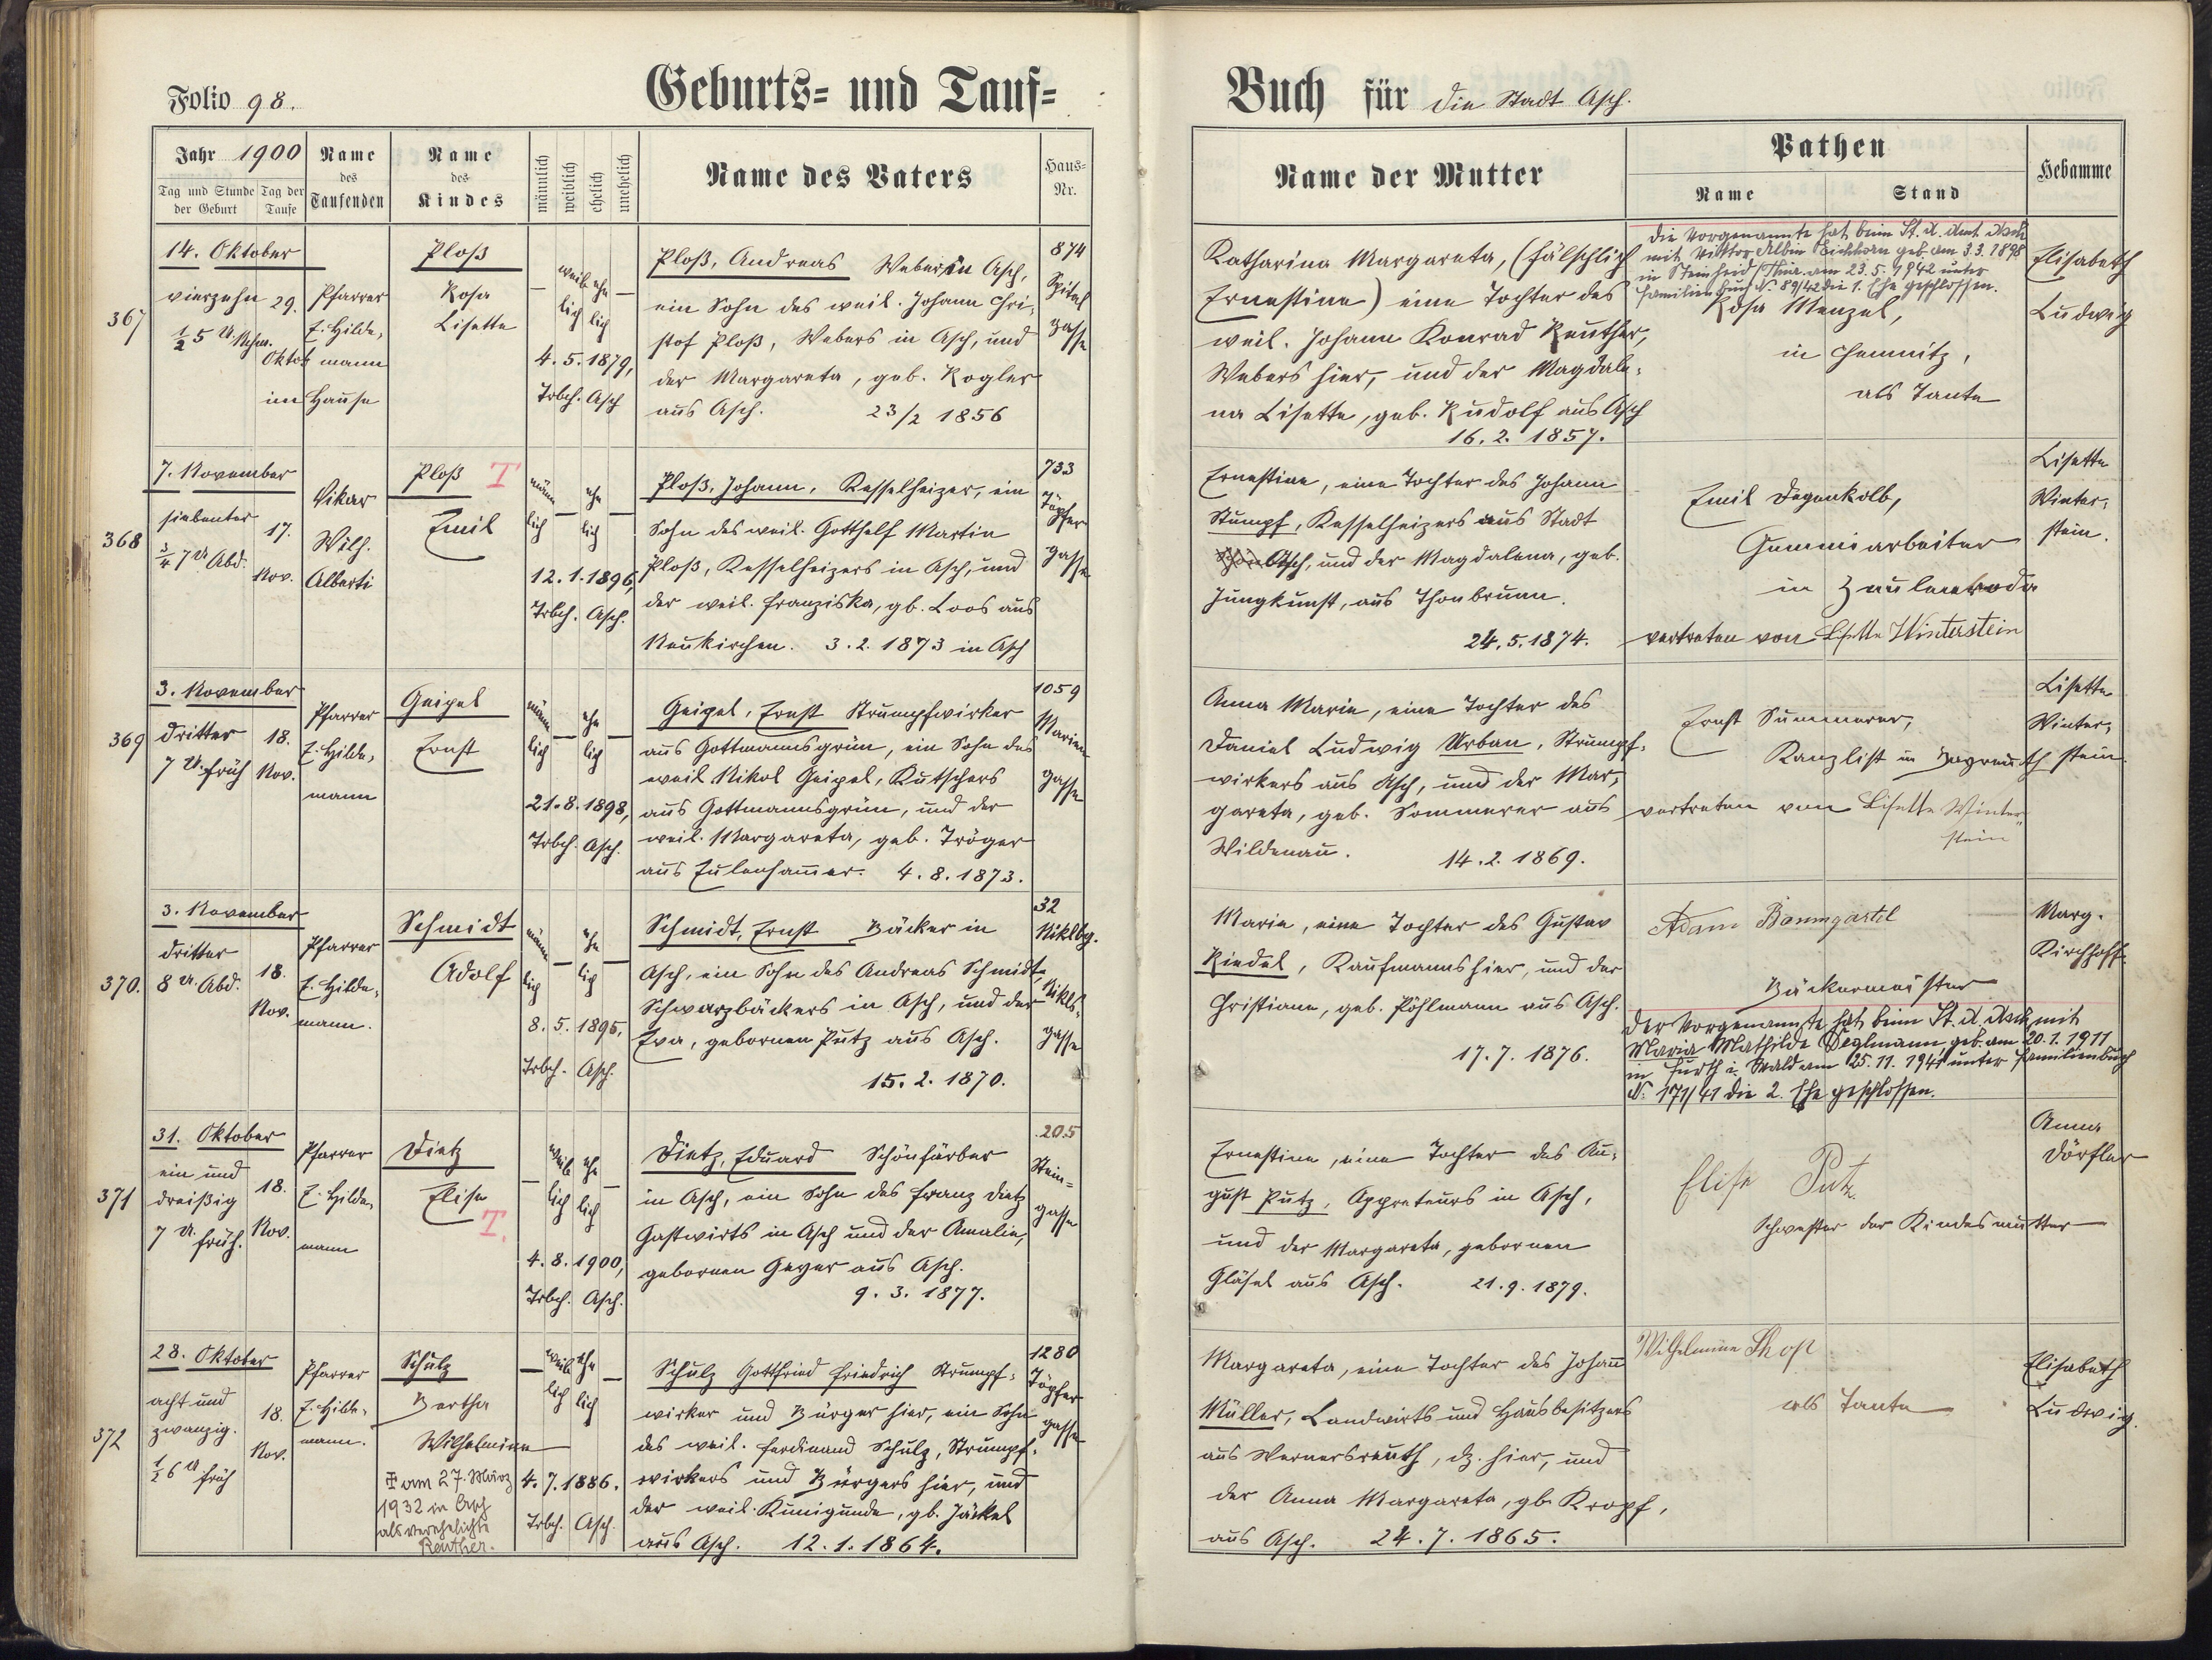 Folio 98.
Geburts- und Tauf-
Jahr 1900
Tag und Stunde der Geburt
Tag der Taufe
Name des Taufenden
Name des Kindes
männlich
weiblich
ehelich
unehelich
Name des Vaters
Haus-Nr.
Buch für die Stadt Asch.
Name der Mutter
Pathen
Name
Stand
Hebamme
367
14. Oktober
vierzehn
½5 U. Nchm.
29.
Oktob
im Hause
Pfarrer
E. Hilde,
mann
Ploß
Rosa
Lisette
weib
lich
ehe
lich
4. 5. 1879,
Trbch. Asch
Ploß, Andreas Weber in Asch,
ein Sohn des weil. Johann Chri,
stof Ploß, Webers in Asch, und
der Margareta, geb. Kogler
aus Asch. 23/2 1856
874
Spital
gasse
Katharina Margareta, (fälschlich
Ernestine) eine Tochter des
weil. Johann Konrad Reuther,
Webers hier, und der Magdale,
na Lisette, geb. Rudolf aus Asch
16. 2. 1857.
die Vorgenannte hat beim St. A. Amt Asch
mit Viktor Albin Eichhorn geb. am 3.3.1898
in Steinheid/Thür. am 23.5.1942 unter
Familienbuch N. 89/42 die 1. Ehe geschlossen.
Rosa Menzel,
in Chemnitz,
als Tante
Elisabeth
Ludwig
368
7. November
siebenter
¾7 U Abd.
17.
Nov.
Vikar
Wilh.
Alberti
Ploß T
Emil
männ
lich
ehe
lich
12. 1. 1896,
Trbch. Asch.
Ploß, Johann, Kesselheizer, ein
Sohn des weil. Gotthelf Martin
Ploß, Kesselheizers in Asch, und
der weil. Franziska, gb. Loos aus
Neukirchen. 3. 2. 1873 in Asch
733
Töpfer
gasse
Ernestine, eine Tochter des Johann
Stumpf, Kesselheizers aus Stadt
Asch, und der Magdalena, geb.
Jungkunst, aus Thonbrunn.
24. 5. 1874.
Emil Degenkolb,
Gummiarbeiter
in Zeulenroda
vertreten von Lisette Winterstein
Lisette
Winter,
stein.
369
3. November
dritter
7 U. früh
18.
Nov.
Pfarrer
E. Hilde,
mann
Geipel
Ernst
männ
lich
ehe
lich
21. 8. 1898,
Trbch. Asch.
Geipel, Ernst Strumpfwirker
aus Gottmannsgrün, ein Sohn des
weil Nikol Geipel, Kutschers
aus Gottmannsgrün, und der
weil. Margareta, geb. Tröger
aus Eulenhammer. 4. 8. 1873.
1059
Marien
gasse
Anna Marie, eine Tochter des
Daniel Ludwig Urban, Strumpf,
wirkers aus Asch, und der Mar,
gareta, geb. Sommerer aus
Wildenau. 14. 2. 1869.
Ernst Summerer,
Kanzlist in Bayreuth
vertreten von Lisette Winter,
stein
Lisette
Winter,
stein
370.
3. November
dritter
8 U. Abd.
18.
Nov.
Pfarrer
E. Hilde,
mann.
Schmidt
Adolf
männ
lich
ehe
lich
8. 5. 1895,
Trbch. Asch.
Schmidt, Ernst Bäcker in
Asch, ein Sohn des Andreas Schmidt,
Schwarzbäckers in Asch, und der
Eva, gebornen Putz aus Asch.
15. 2. 1870.
32
Niklbg.
Nikls,
gasse
Marie, eine Tochter des Gustav
Riedel, Kaufmanns hier, und der
Christiane, geb. Pöhlmann aus Asch.
17. 7. 1876.
Adam Baumgärtel
Bäckermeister
Der Vorgenannte hat beim St. A. Asch mit
Maria Mathilde Deglmann, geb. am 20.1.1911
in Furth i. Wald am 25.11.1941 unter Familienbuch
N. 171/41 die 2. Ehe geschlossen.
Marg.
Kirchhoff.
371
31. Oktober
ein und
dreißig
7 U. früh.
18.
Nov.
Pfarrer
E. Hilde,
mann
Dietz
Elise
T.
weib
lich
ehe
lich
4. 8. 1900,
Trbch. Asch.
Dietz, Eduard Schönfärber
in Asch, ein Sohn des Franz Dietz
Gastwirts in Asch und der Amalie,
gebornen Geyer aus Asch.
9. 3. 1877.
205
Stein-
gasse
Ernestine, eine Tochter des Au,
gust Putz, Appreteurs in Asch,
und der Margareta, gebornen
Gläsel aus Asch. 21. 9. 1879.
Elise Putz
Schwester der Kindesmutter
Anna
Dörfler
372
28. Oktober
acht und
zwanzig.
½6 U früh
18.
Nov.
Pfarrer
E. Hilde,
mann.
Schulz
Bertha
Wilhelmine
am 27. März
1932 in Asch
als verehelichte
Reuther.
weib
lich
ehe
lich
4. 7. 1886.
Trbch. Asch.
Schulz Gottfried Friedrich Strumpf,
wirker und Bürger hier, ein Sohn
des weil. Ferdinand Schulz, Strumpf,
wirkers und Bürgers hier, und
der weil. Kunigunde, gb. Jäckel
aus Asch. 12. 1. 1864.
1280
Töpfer
gasse
Margareta, eine Tochter des Johann
Müller, Landwirts und Hausbesitzers
aus Wernersreuth, dz. hier, und
der Anna Margareta, gb. Kropf,
aus Asch. 24. 7. 1865.
Wilhelmine
als Tante
Elisabeth
Ludwig.